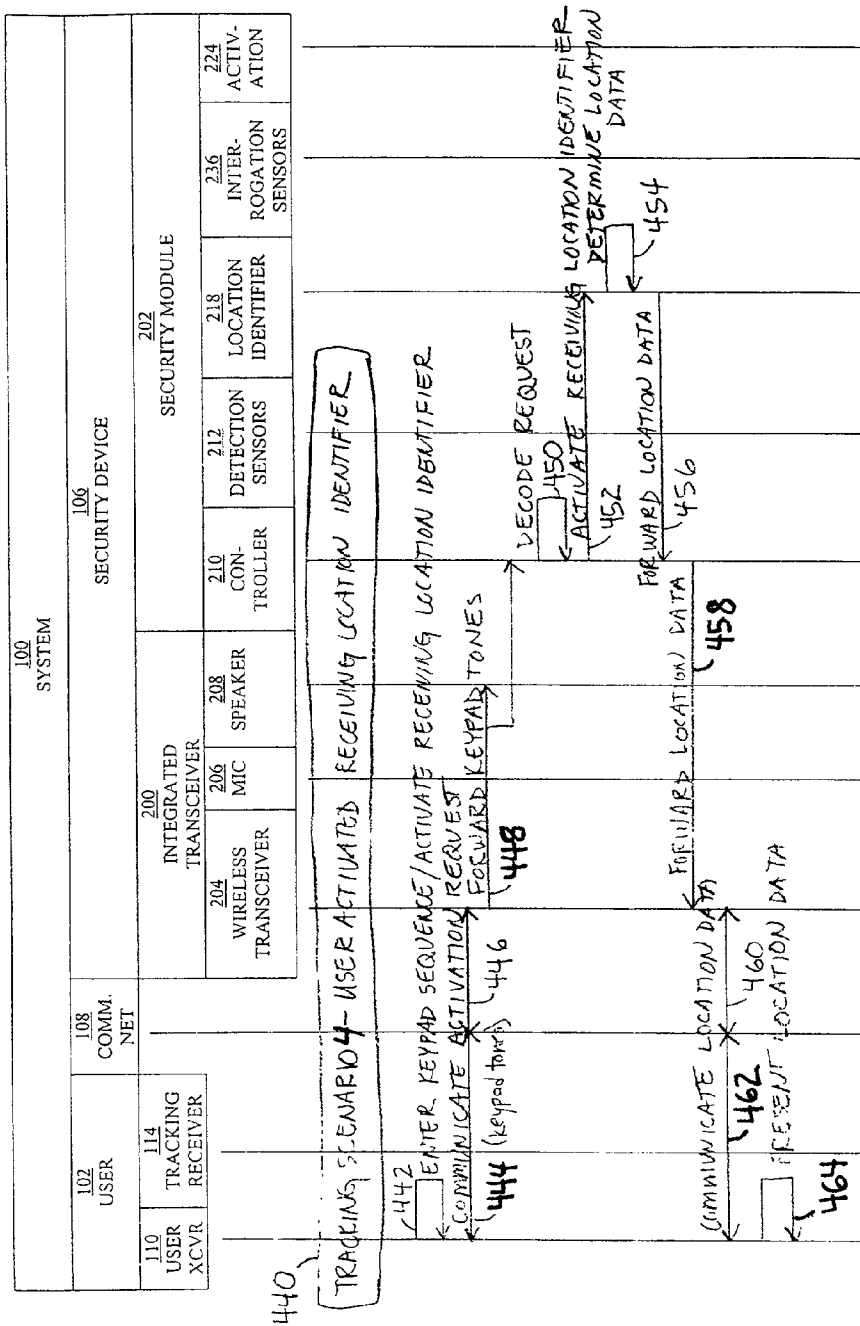 100
SYSTEM
102
USER
108
COMM.
NET
106
SECURITY DEVICE
200
INTEGRATED
TRANSCEIVER
202
SECURITY MODULE
110
USER
XCVR
114
TRACKING
RECEIVER
204
WIRELESS
TRANSCEIVER
206
MIC
208
SPEAKER
210
CON-
TROLLER
212
DETECTION
SENSORS
218
LOCATION
IDENTIFIER
236
INTER-
ROGATION
SENSORS
224
ACTIV-
ATION
440
TRACKING SCENARIO 4 - USER ACTIVATED RECEIVING LOCATION IDENTIFIER
442
ENTER KEYPAD SEQUENCE/ACTIVATE RECEIVING LOCATION IDENTIFIER
COMMUNICATE ACTIVATION REQUEST
444 (keypad tones)
446
FORWARD KEYPAD TONES
448
DECODE REQUEST
450
ACTIVATE RECEIVING LOCATION IDENTIFIER
452
DETERMINE LOCATION
DATA
454
FORWARD LOCATION DATA
456
FORWARD LOCATION DATA
458
COMMUNICATE LOCATION DATA
462
460
PRESENT LOCATION DATA
464